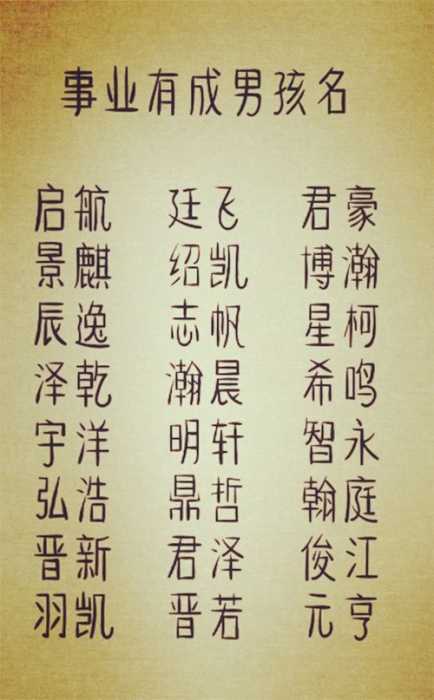 事业有成男孩名
启航 廷飞 君豪
景麒 绍凯 博瀚
辰逸 志帆 星柯
泽乾 瀚晨 希鸣
宇洋 明轩 智永
弘浩 鼎哲 翰庭
晋新 君泽 俊江
羽凯 晋若 元亨